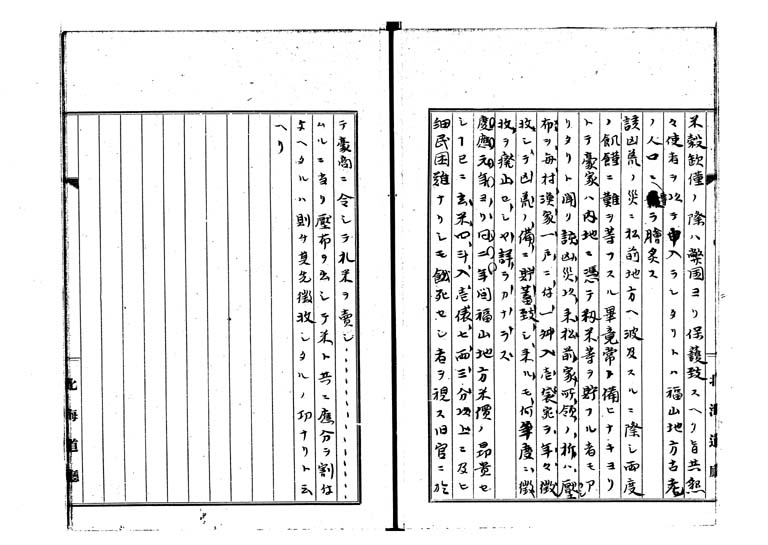 米穀歉僅ノ際ハ弊国ヨリ保護致スヘク旨共懇
々使者ヲ以テ申入ランタリトハ福山地方古老
ノ人口ニヲ膾炙ス
該凶荒ノ災ニ松前地方ヘ波及スルニ際シ両度
ノ飢饉ニ難ヲ等フスル畢竟常ノ備ヒナキヨリ
トテ豪家ハ内地ニ憑テ籾米等ヲ貯フル者モア
リタリト聞リ該凶災以来松前家所領ノ折ハ壓
布ヲ毎村漁家一戸ニ付一舛入壱袋宛ヲ年々徴
收シテ凶荒ノ備ニ貯蓄致シ来ルモ何年度ニ徴
收ヲ廃止セシヤ詳ラカナラス
慶應元年ヨリ同二年間福山地方米價ノ昂貴セ
シ１已ニ玄米四斗入壱俵七両三分以上ニ及ヒ
細民困難ナリシモ餓死セシ者ヲ視ス旧官ニ於
テ豪商ニ令シテ札米ヲ賣シ
ムルニ当リ壓布ヲ出シテ米ト共ニ應分ヲ割付
与ヘタルハ則チ其先徴收シタルノ功ナリト云
ヘリ
北海道廳
北海道廳